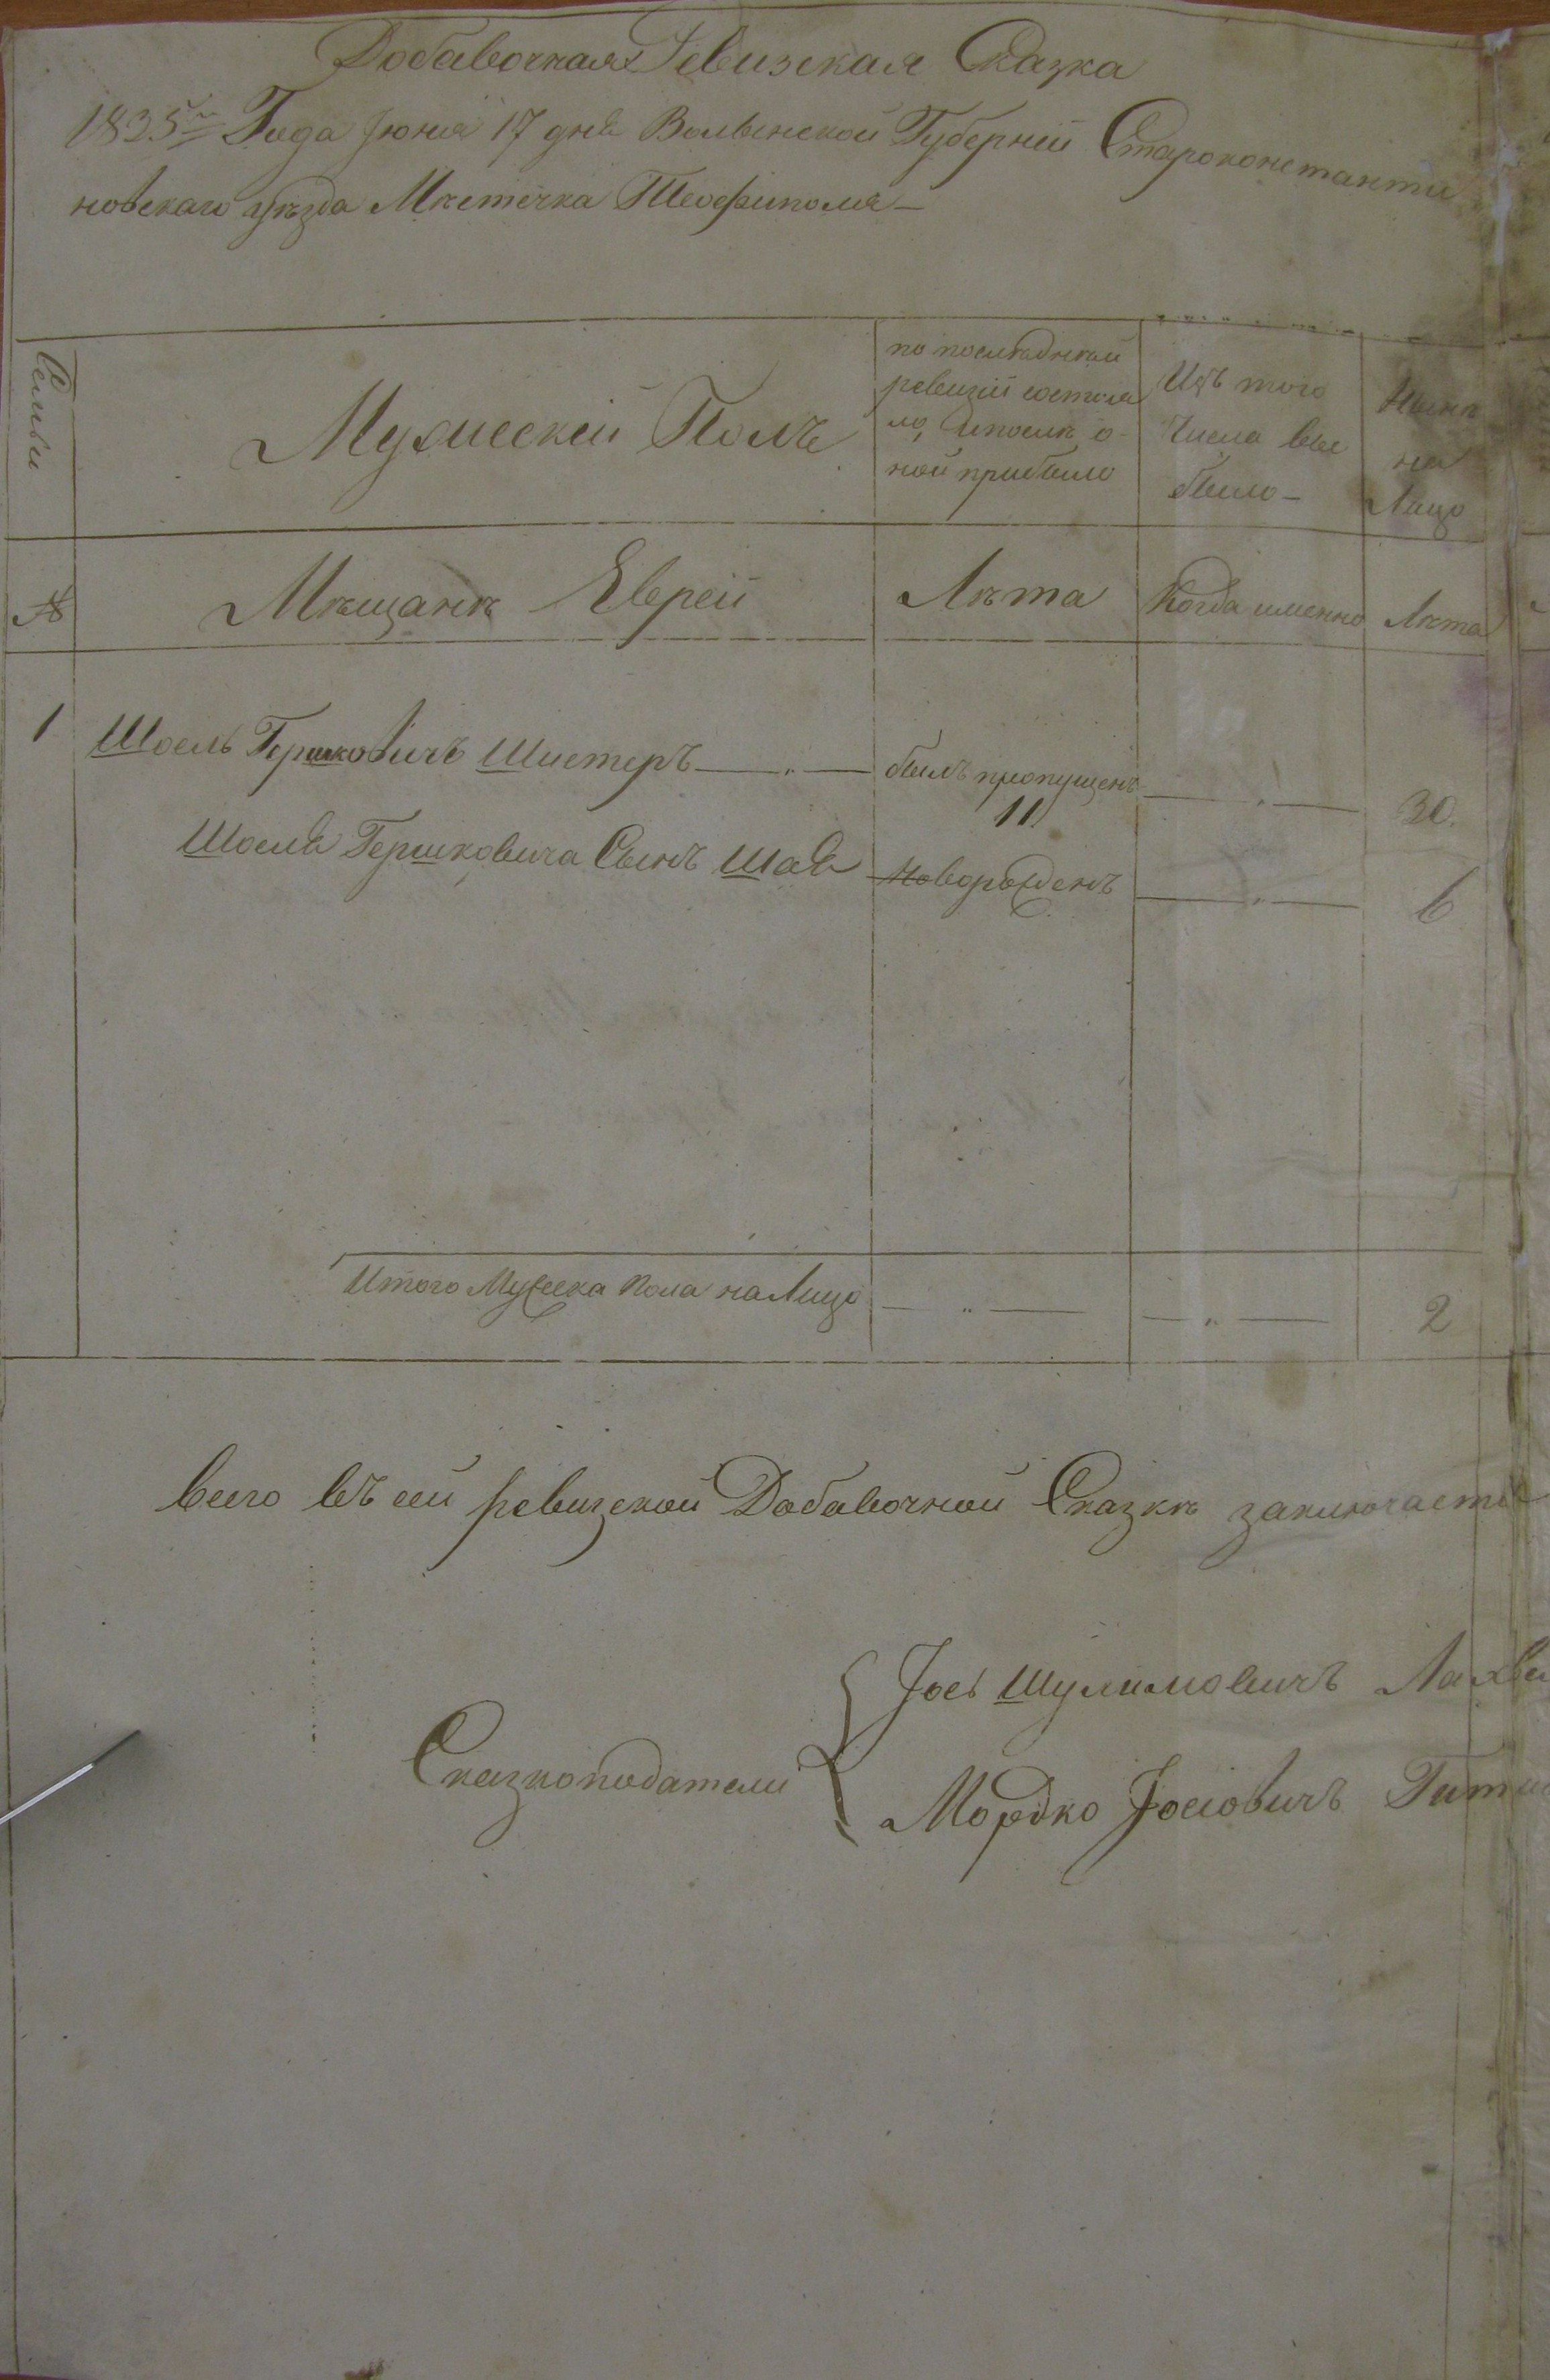 Добавочная Ревизская Сказка
1835го Года Іюня 17 дня Волынской Губерніи Староконстанти
новскаго уѣзда Мѣстечка Теофиполя —
Семьи
Мужескій Полъ
по последнѣй
ревизіи состоя
ло, и после о
ной прибыло
Изъ того
Числа вы
было —
Нынѣ
на
Лицо
№
Мѣщанѣ Евреи
Лѣта
Когда именно
Лѣта
1
Шоель Гершковичъ Шистеръ — „ —
былъ пропущенъ
11
— „ —
30.
Шоеля Гершковича Сынъ Шая
Новорожденъ
— „ —
6
Итого Мужеска пола на Лицо
— „ —
— „ —
2
Всего въ сей ревизской Добавочной Сказкѣ заключается
Сказкоподатели
Іось Шулимовичъ
Мордко Іосіовичъ